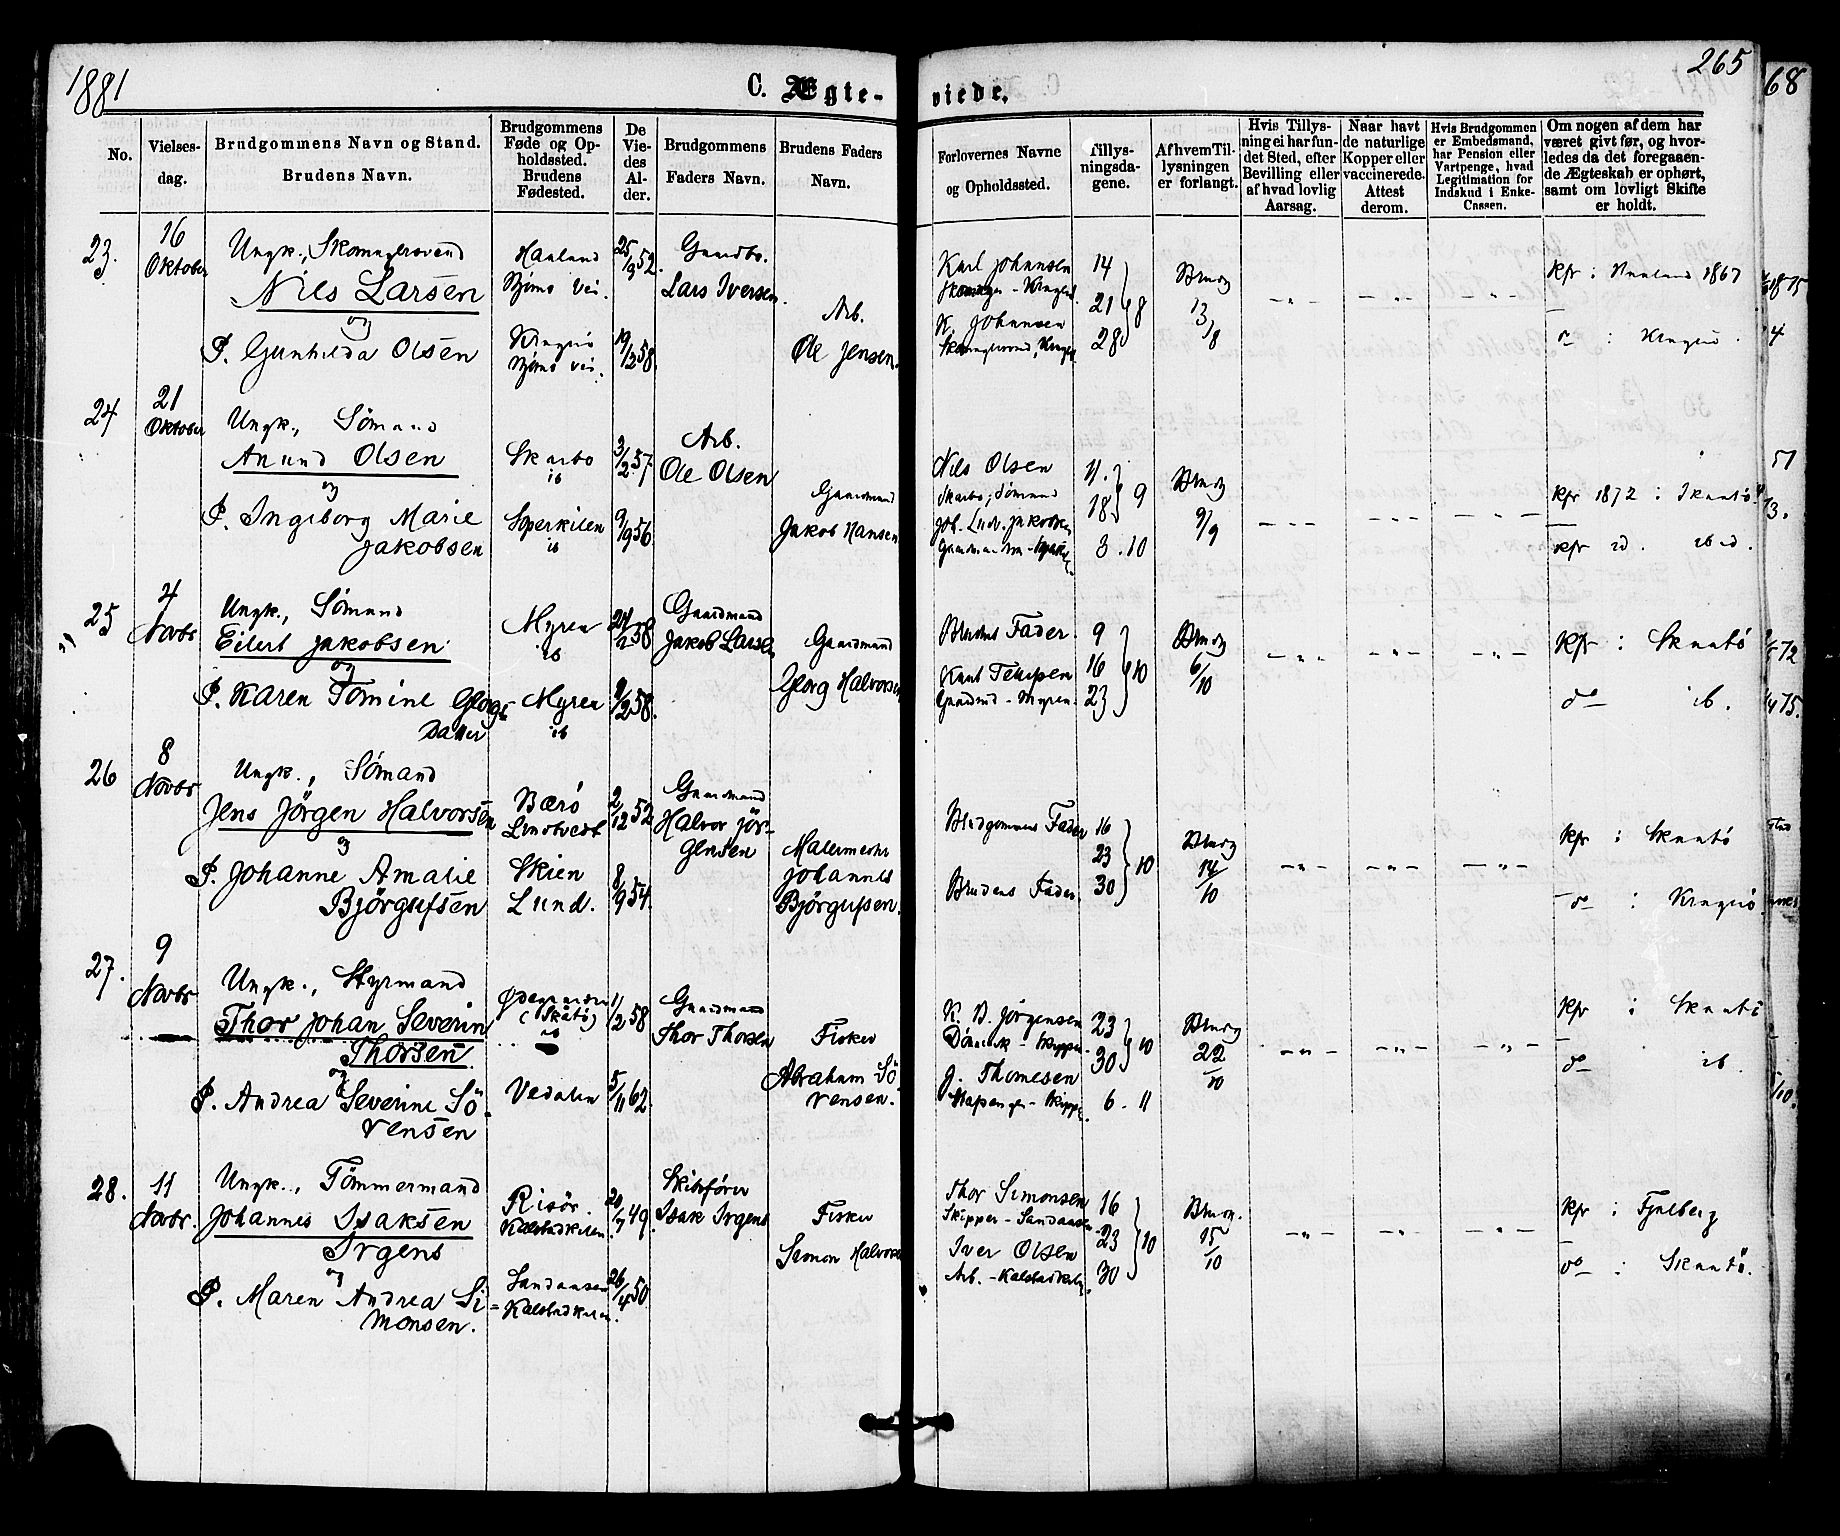 1881
C. Ægte-
viede.
265
68
No.
Vielses-
dag.
Brudgommens Navn og Stand.
Brudens Navn.
Brudgommens
Føde og Op-
holdssted.
Brudens
Fødested.
De
Vie-
des
Al-
der.
Brudgommens
Faders Navn.
Brudens Faders
Navn.
Forlovernes Navne
og Opholdssted.
Tillys-
ningsda-
gene.
Af hvem Til-
lysningen
er forlangt.
Hvis Tillys-
ning ei har fun-
det Sted, efter
Bevilling eller
af hvad lovlig
Aarsag.
Naar havt
de naturlige
Kopper eller
vaccinerede.
Attest
derom.
Hvis Brudgommen
er Embedsmand,
har Pension eller
Vartpenge, hvad
Legitimation for
Indskud i Enke-
Cassen.
Om nogen af dem har
været givt før, og hvor-
ledes da det foregaaen-
de Ægteskab er ophørt,
samt om lovligt Skifte
er holdt.
23.
16
Oktober
Ungk.,
Nils Larsen
og
P. Gunhilda Olsen
25/3 52.
19/12 58.
Lars Iversen.
Arb.
Ole Jensen.
Karl Johansen
K. Johansen
14
21 } 8
28
Brudg
13/8
24
21
Oktober
Ungk., Sømand
Anund Olsen
og
P. Ingeborg Marie
Jakobsen
Skarbo
ib
ib
3/2 57.
9/9 56
Arb.
Ole Olsen
Gaardmand
Jakob Hansen
Nils Olsen
Skarbo; Sømand
11.
18 } 9
3. 10
Brudg
9/9
kfr 1872 : Skaatö
kfr id. ibid.
25
4
Novbr
Ungk., Sømand
Eilert Jakobsen
og
P. Karen Tomine Georgs
Datter
Myren
ib
Myren
ib
24/2 58
9/2 58.
Gaardmand
Jakob Larsen
Gaardmand
Georg Halvorsen
Brudens Fader.
9
16 } 10
23
Brudg
6/10
kfr : Skaatö
do ib.
26
8
Novbr
Ungk., Sømand
Jens Jörgen Halvorsen
og
P. Johanne Amalie
Björgufsen
Bærö
Skien
Lund.
2/12 52
8/9 54.
Gaardmand
Halvor Jör-
gensen
Malermester
Johannes
Björgufsen.
Brudgommens Fader
Brudens Fader.
16
23 } 10
30
Brudg
14/10
kfr : Skaatö
do : Kragerö
27.
9
Novbr
Ungk., Styrmand
Thor Johan Severin
Thorsen.
og
P. Andrea Severine Sö-
rensen
(Skåtö)
ib
Vedalen
11/2 58
5/11 62.
Gaardmand
Thor Thorsen
Fisker
Abraham Sö-
rensen.
K. B. Jörgensen
J. Thomesen
23
30 } 10
6. 11
Brudg
22/10
kfr : Skaatö
do ib.
28.
11
Novbr.
Ungk., Tömmermand
Johannes Isaksen
Irgens
og
P. Maren Andrea Si-
monsen.
Risör.
Kalstadkilen
Sandaasen
Kalstadkilen
20/7 49.
26/4 50
Skibsförer
Isak Irgens
Fisker
Simon Halvorsen
Thor Simonsen
Skipper - Sandaasen
Iver Olsen
Arb. - Kalstadkilen
16
23 } 10
30
Brudg.
15/10
kfr : Fjelberg
do : Skaatö.